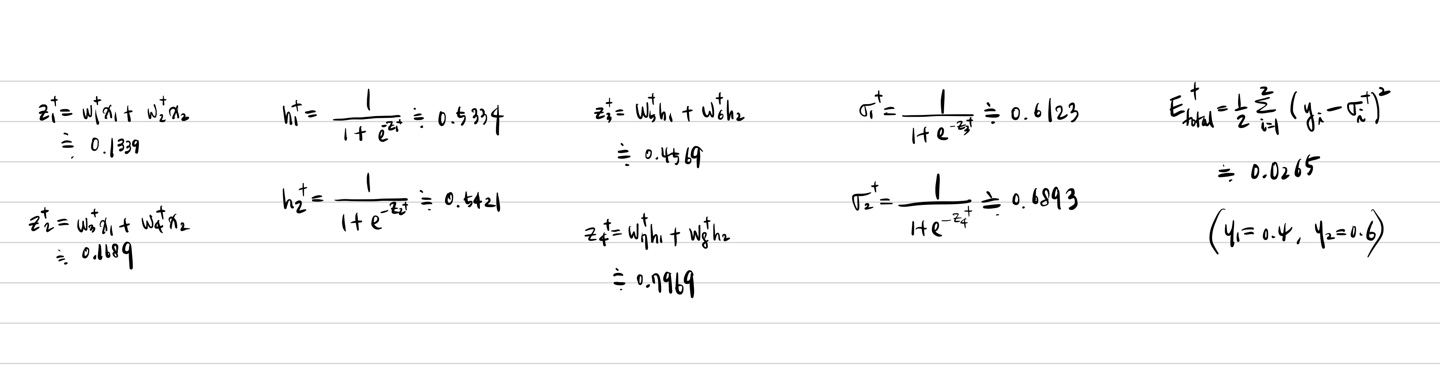 z₁⁺ = w₁⁺x₁ + w₂⁺x₂
≒ 0.1339
z₂⁺ = w₃⁺x₁ + w₄⁺x₂
≒ 0.1689
h₁⁺ = 1 / (1 + e^(-z₁⁺)) ≒ 0.5334
h₂⁺ = 1 / (1 + e^(-z₂⁺)) ≒ 0.5421
z₃⁺ = w₅⁺h₁ + w₆⁺h₂
≒ 0.4569
z₄⁺ = w₇⁺h₁ + w₈⁺h₂
≒ 0.7969
σ₁⁺ = 1 / (1 + e^(-z₃⁺)) ≒ 0.6123
σ₂⁺ = 1 / (1 + e^(-z₄⁺)) ≒ 0.6893
E⁺total = 1/2 Σ_(i=1)^2 (yᵢ − σᵢ⁺)²
≒ 0.0265
(y₁ = 0.4, y₂ = 0.6)